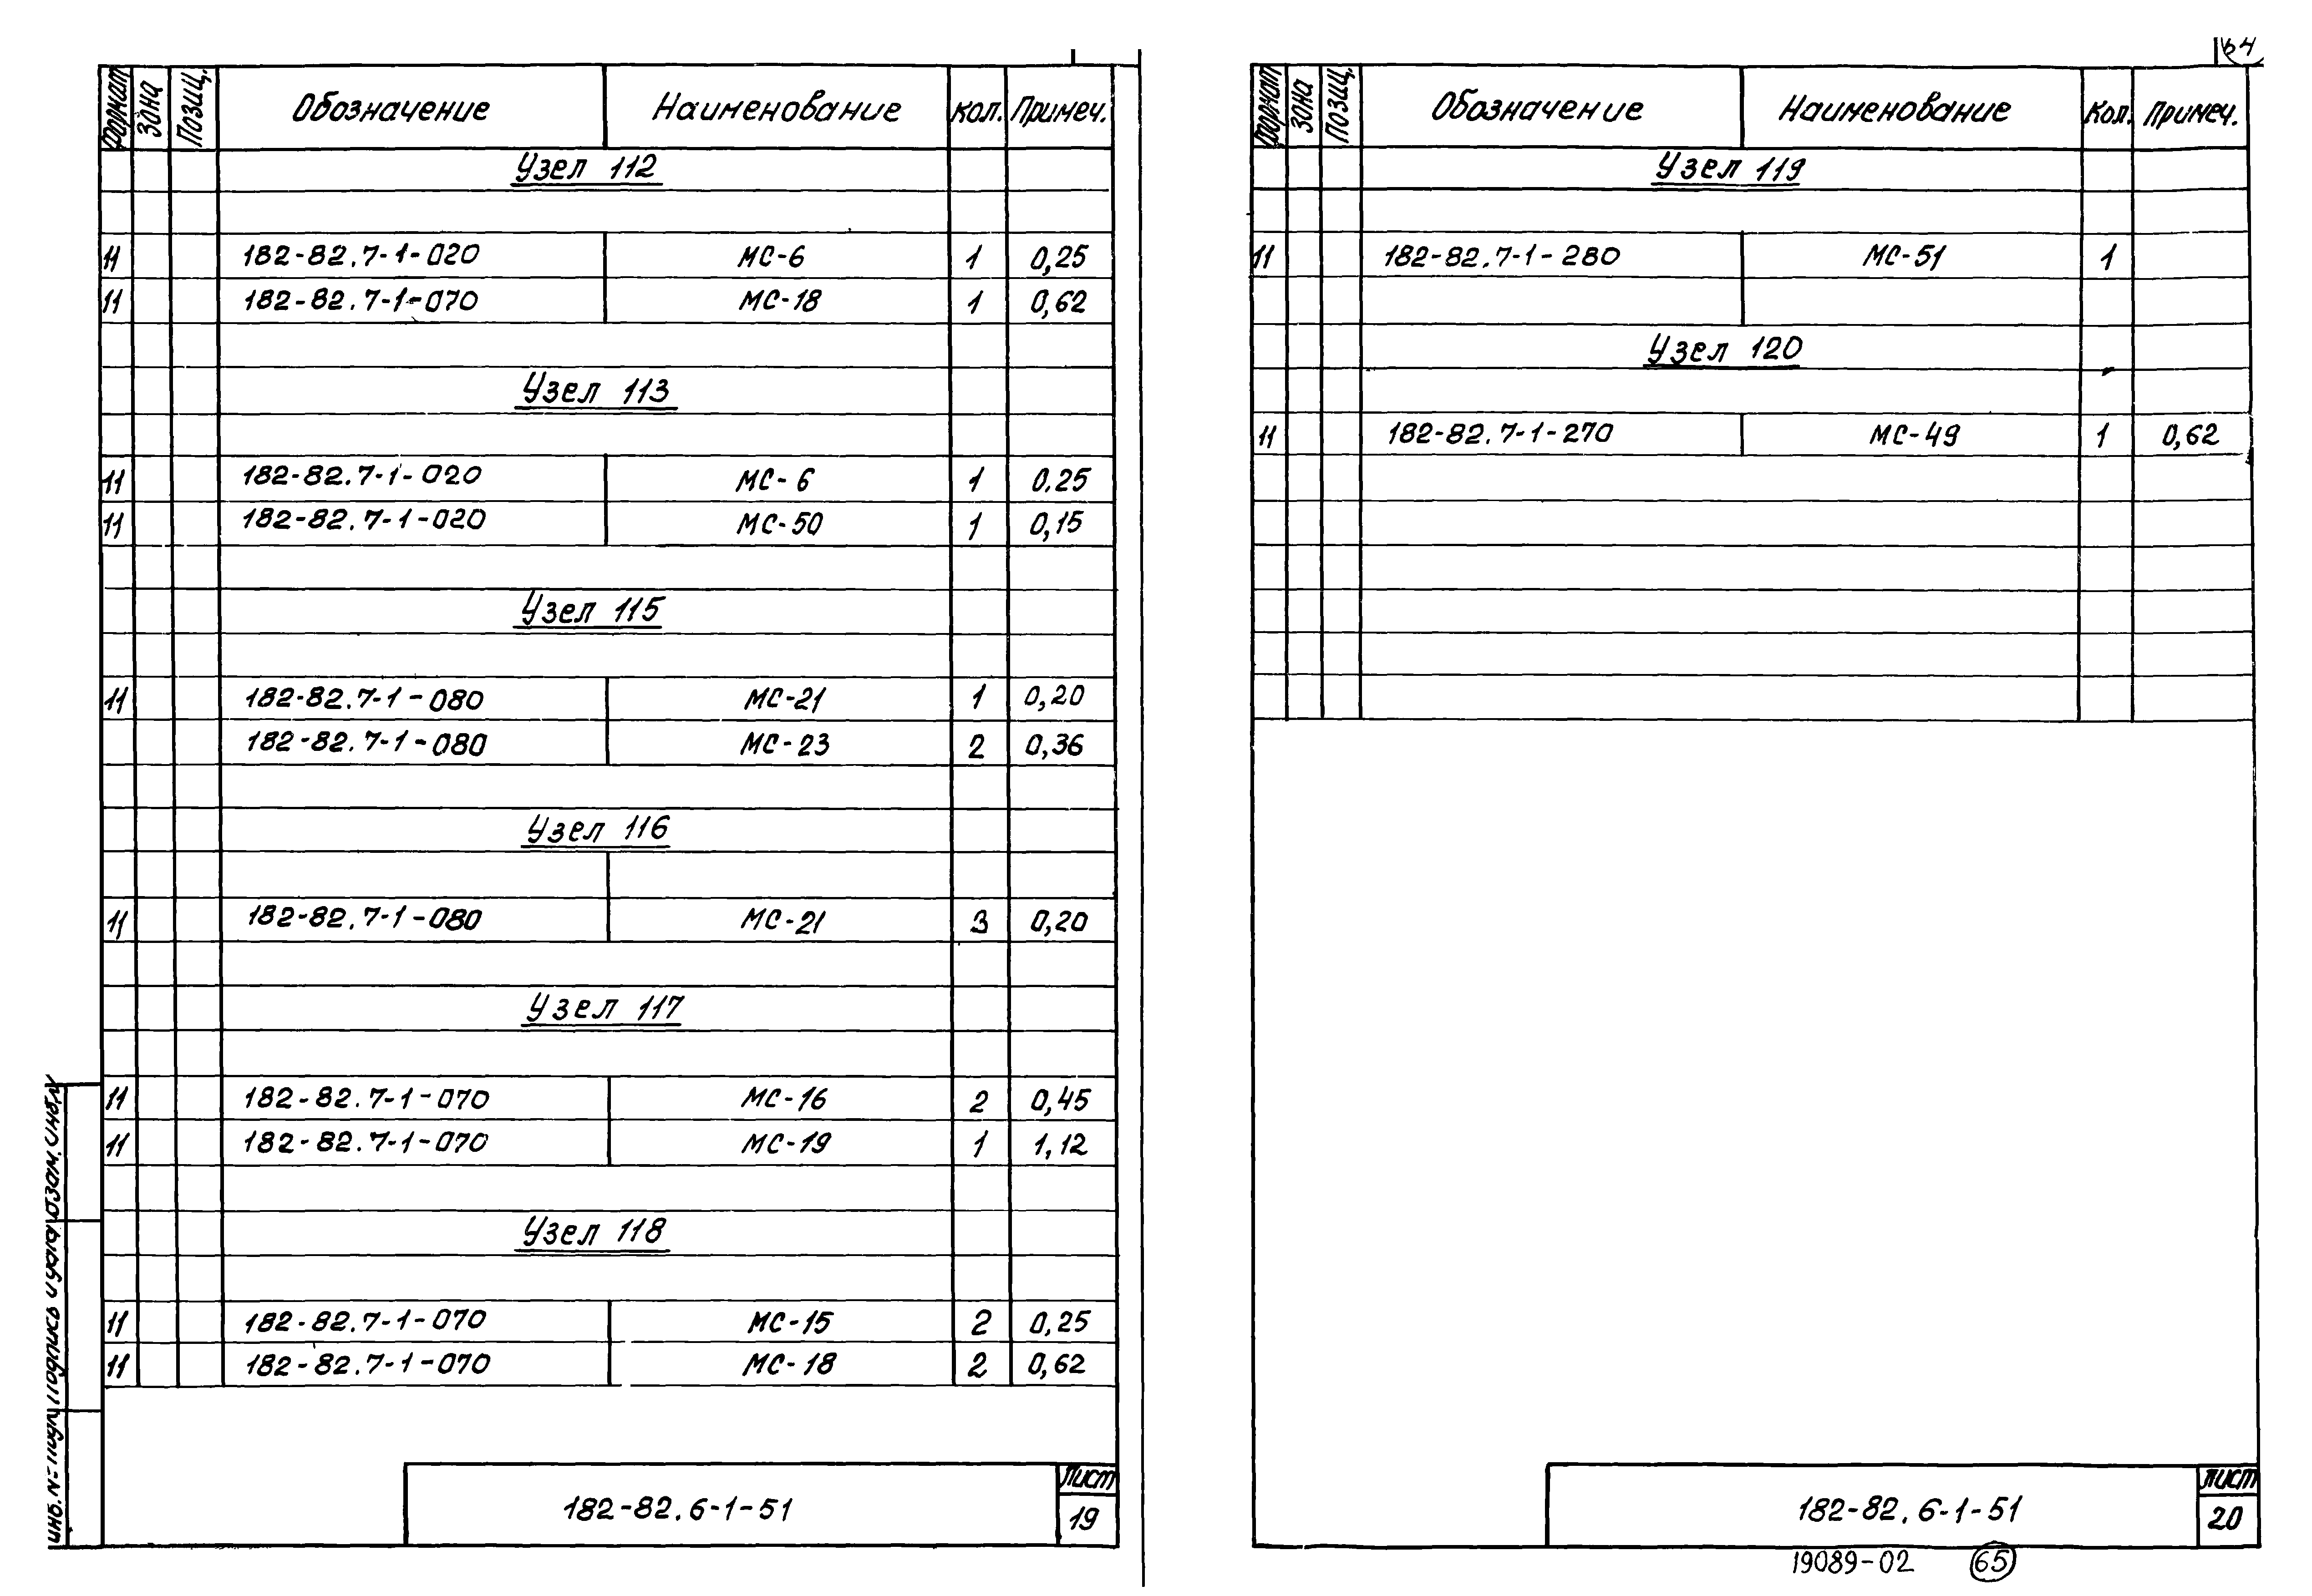 Формат Зона Позиц. Обозначение Наименование Кол. Примеч.
Узел 112
11 182-82.7-1-020 МС-6 1 0,25
11 182-82.7-1-070 МС-18 1 0,62
Узел 113
11 182-82.7-1-020 МС-6 1 0.25
11 182-82.7-1-020 МС-50 1 0,15
Узел 115
11 182-82.7-1-080 МС-21 1 0,20
182-82.7-1-080 МС-23 2 0,36
Узел 116
11 182-82.7-1-080 МС-21 3 0,20
Узел 117
11 182-82.7-1-070 МС-16 2 0,45
11 182-82.7-1-070 МС-19 1 1,12
Узел 118
11 182-82.7-1-070 МС-15 2 0,25
11 182-82.7-1-070 МС-18 2 0,62
182-82.6-1-51
Лист
19
64
Формат Зона Позиц. Обозначение Наименование Кол. Примеч.
Узел 119
11 182-82.7-1-280 МС-51 1
Узел 120
11 182-82.7-1-270 МС-49 1 0,62
182-82.6-1-51
Лист
20
19089-02 65